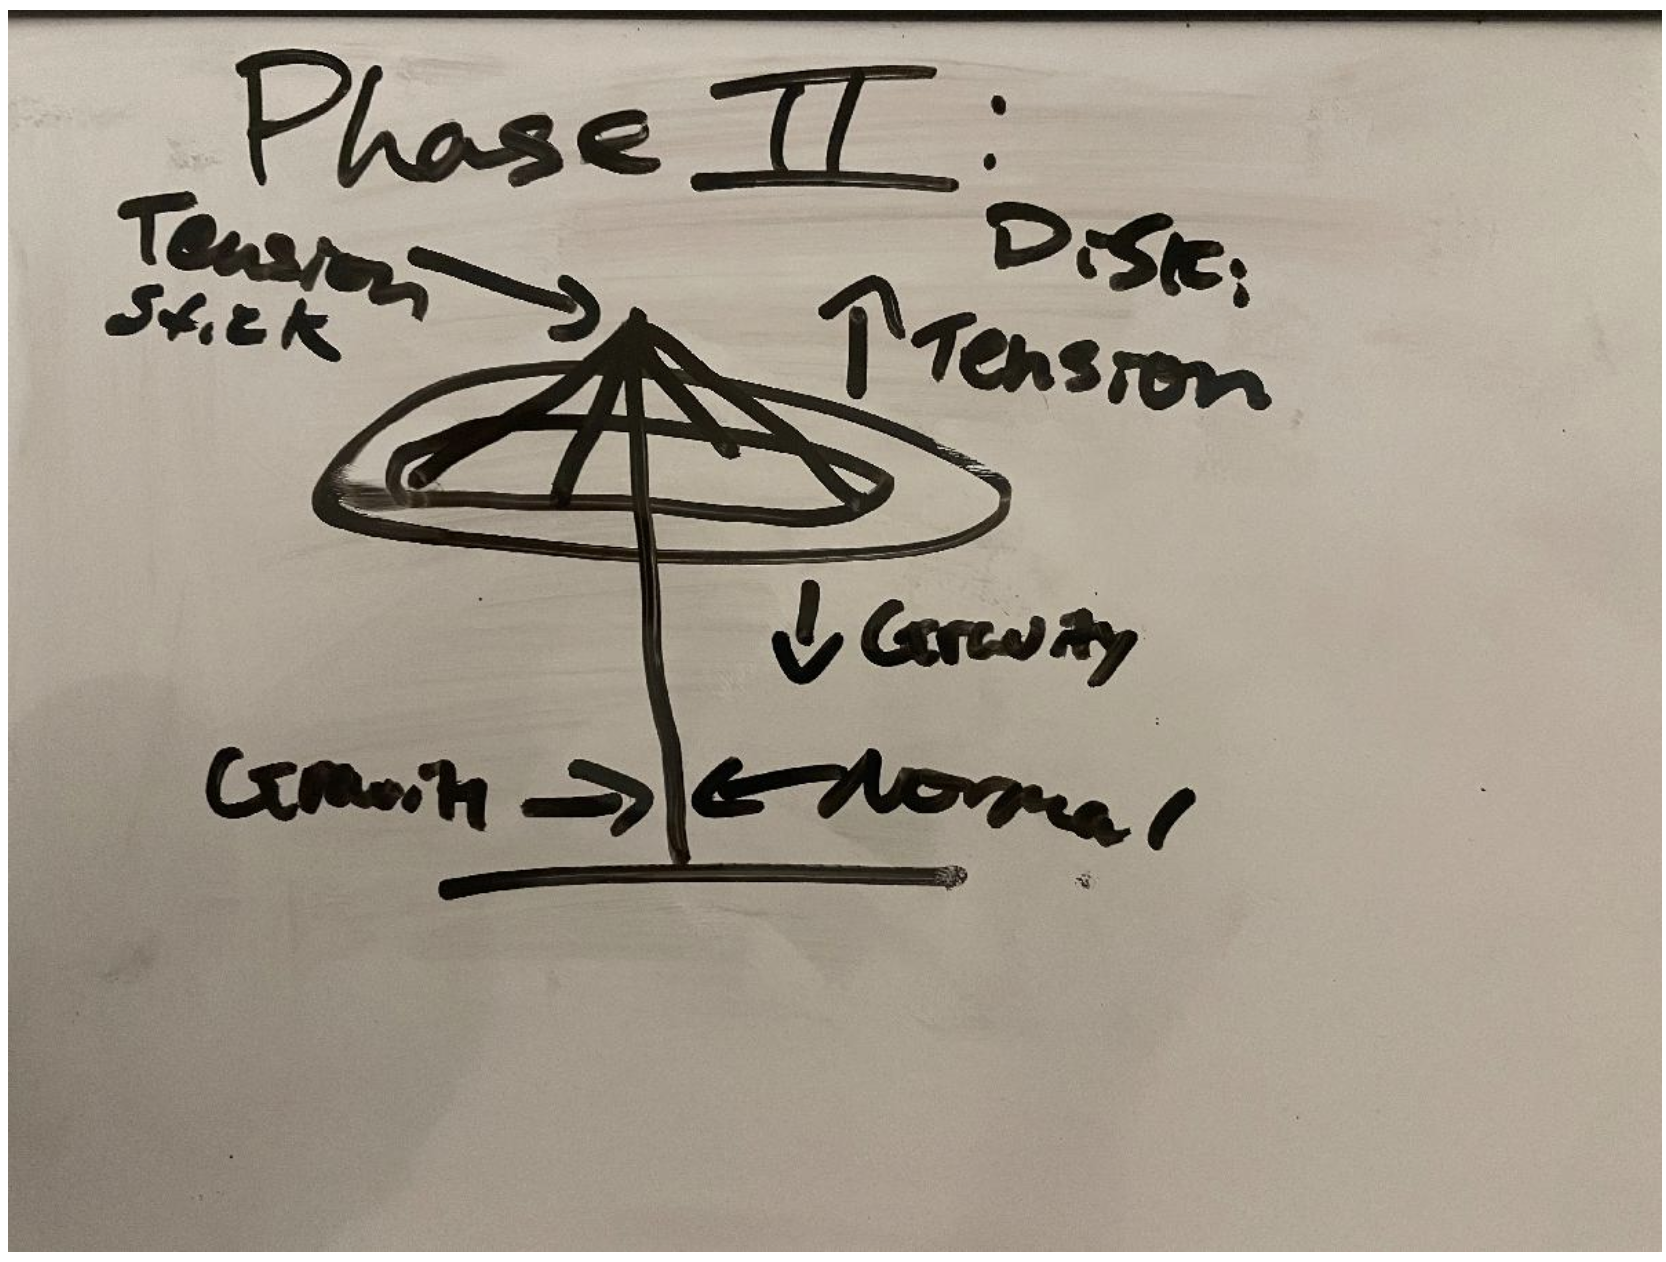 Phase II:
Tension
Stick
Disk:
Tension
Gravity
Gravity
Normal